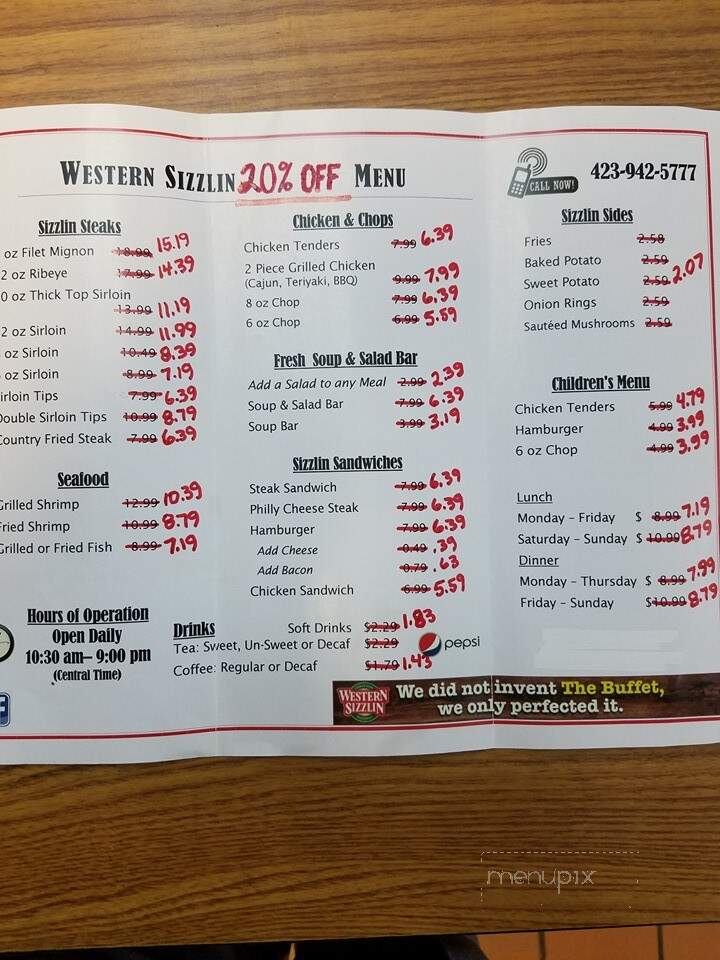 WESTERN SIZZLIN 20% OFF MENU
CALL NOW!
423-942-5777
Sizzlin Steaks
oz Filet Mignon 18.99 15.19
2 oz Ribeye 17.99 14.39
0 oz Thick Top Sirloin
13.99 11.19
2 oz Sirloin 14.99 11.99
oz Sirloin 10.49 8.39
oz Sirloin 8.99 7.19
irloin Tips 7.99 6.39
Double Sirloin Tips 10.99 8.79
Country Fried Steak 7.99 6.39
Seafood
Grilled Shrimp 12.99 10.39
Fried Shrimp 10.99 8.79
Grilled or Fried Fish 8.99 7.19
Hours of Operation
Open Daily
10:30 am– 9:00 pm
(Central Time)
Chicken & Chops
Chicken Tenders 7.99 6.39
2 Piece Grilled Chicken
(Cajun, Teriyaki, BBQ) 9.99 7.99
8 oz Chop 7.99 6.39
6 oz Chop 6.99 5.59
Fresh Soup & Salad Bar
Add a Salad to any Meal 2.99 2.39
Soup & Salad Bar 7.99 6.39
Soup Bar 3.99 3.19
Sizzlin Sandwiches
Steak Sandwich 7.99 6.39
Philly Cheese Steak 7.99 6.39
Hamburger 7.99 6.39
Add Cheese 0.49 .39
Add Bacon 0.79 .63
Chicken Sandwich 6.99 5.59
Drinks
Soft Drinks $2.29 1.83
Tea: Sweet, Un-Sweet or Decaf $2.29
Coffee: Regular or Decaf $1.79 1.43
pepsi
Sizzlin Sides
Fries 2.58
Baked Potato 2.59
Sweet Potato 2.59 2.07
Onion Rings 2.59
Sautéed Mushrooms 2.59
Children's Menu
Chicken Tenders 5.99 4.79
Hamburger 4.99 3.99
6 oz Chop 4.99 3.99
Lunch
Monday – Friday $ 8.99 7.19
Saturday – Sunday $ 10.99 8.79
Dinner
Monday – Thursday $ 8.99 7.99
Friday – Sunday $10.99 8.79
WESTERN SIZZLIN
We did not invent The Buffet,
we only perfected it.
menupix